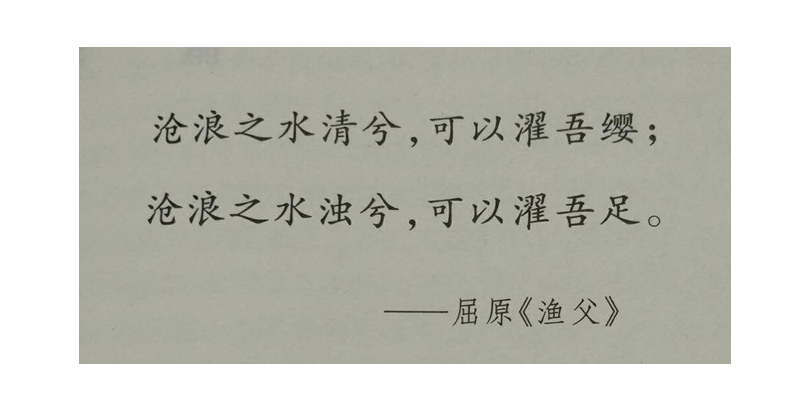 沧浪之水清兮,可以濯吾缨;
沧浪之水浊兮,可以濯吾足。
——屈原《渔父》